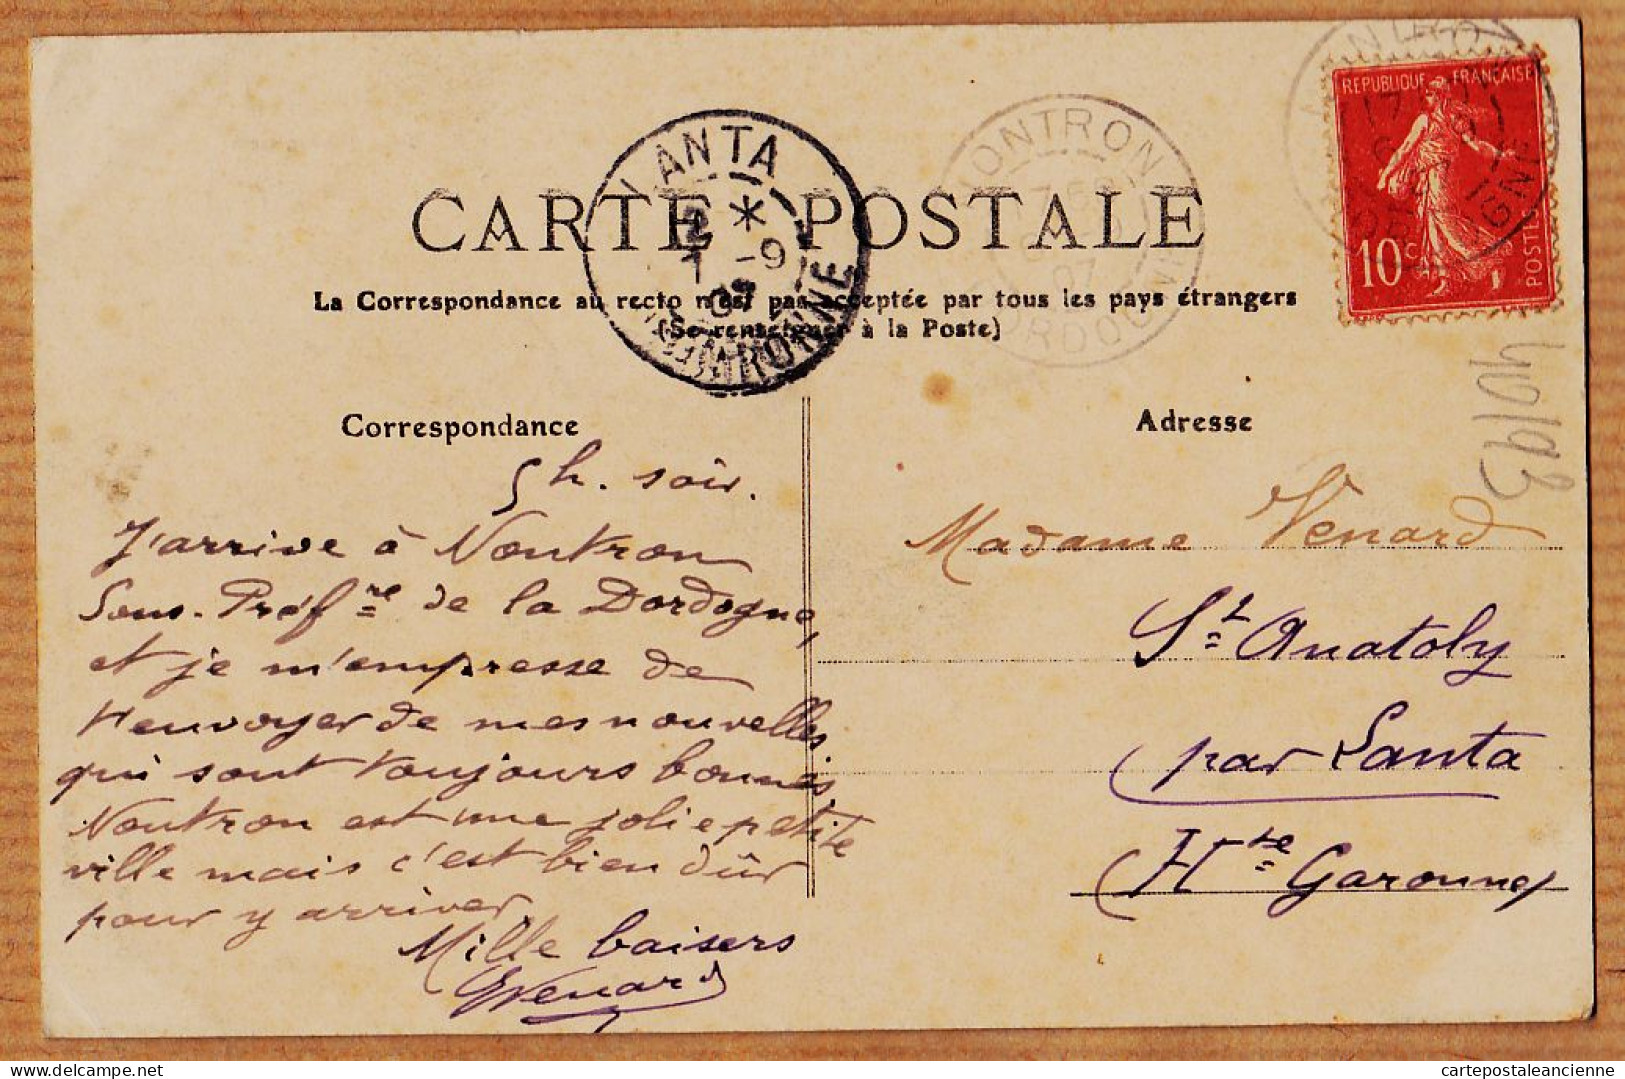 CARTE POSTALE
La Correspondance au recto n'est pas acceptée par tous les pays étrangers
(Se renseigner à la Poste)
LANTA
1 -9
GARONNE
NONTRON
DORDOGNE
REPUBLIQUE FRANÇAISE
10 c
POSTES
40193
Correspondance
5 h. soir.
J'arrive à Nontron
Sous-Préf.re de la Dordogne,
et je m'empresse de
t'envoyer de mes nouvelles,
qui sont toujours bonnes,
Nontron est une jolie petite
ville mais c'est bien dûr
pour y arriver
Mille baisers
Venard
Adresse
Madame Venard
St Anatoly
par Lanta
Hte Garonne
cartepostaleancienne
delcampe.net